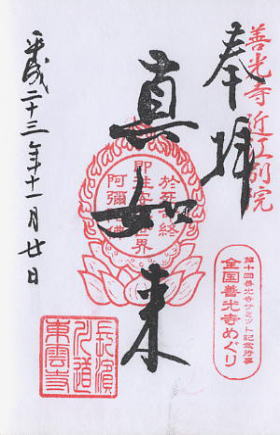 善光寺近江別院
奉拝
真如来
於
終
即往
世界
阿彌
第十回善光寺サミット記念行事
全国善光寺めぐり
平成二十三年十一月廿日
長濱
東雲寺